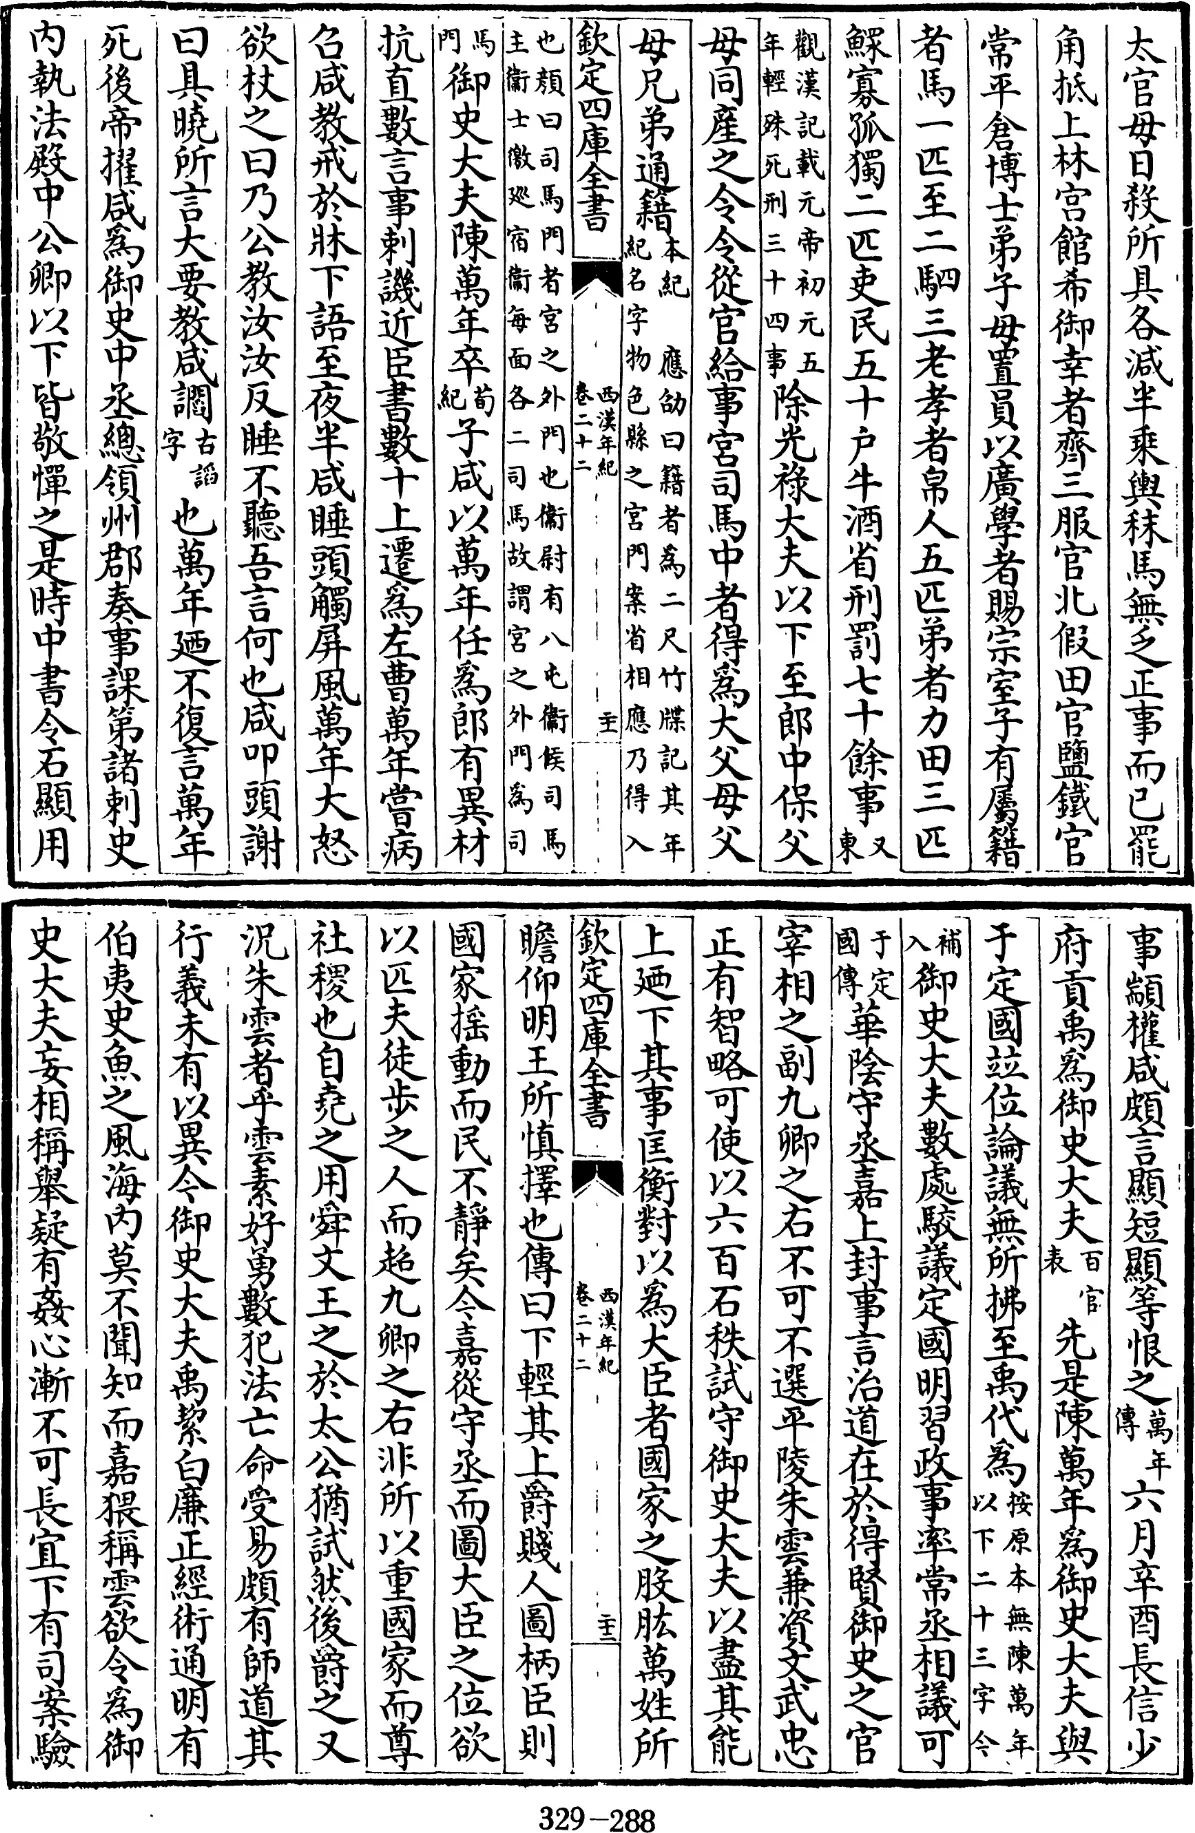 太官毋日殺所具各減半乘輿秣馬無乏正事而已罷
角抵上林宫館希御幸者齊三服官北假田官鹽鐵官
常平倉博士弟子毋置員以廣學者賜宗室子有屬籍
者馬一匹至二駟三老孝者帛人五匹弟者力田三匹
鰥寡孤獨二匹吏民五十户牛酒省刑罰七十餘事又東
觀漢記載元帝初元五年輕殊死刑三十四事除光禄大夫以下至郎中保父
母同産之令令從官給事宫司馬中者得為大父母父
母兄弟通籍本紀 應劭曰籍者為二尺竹牒記其年紀名字物色縣之宫門案省相應乃得入
欽定四庫全書 西漢年紀 卷二十二 二十一
也顔曰司馬門者宫之外門也衛尉有八屯衛候司馬主衛士徼廵宿衛每面各二司馬故謂宫之外門為司
馬門御史大夫陳萬年卒荀紀子咸以萬年任為郎有異材
抗直數言事刺譏近臣書數十上遷為左曹萬年嘗病
召咸教戒於牀下語至夜半咸睡頭觸屏風萬年大怒
欲杖之曰乃公教汝汝反睡不聽吾言何也咸叩頭謝
曰具曉所言大要教咸讇古諂字也萬年廼不復言萬年
死後帝擢咸為御史中丞總領州郡奏事課第諸刺史
内執法殿中公卿以下皆敬憚之是時中書令石顯用
事顓權咸頗言顯短顯等恨之萬年傳六月辛酉長信少
府貢禹為御史大夫百官表先是陳萬年為御史大夫與
于定國竝位論議無所拂至禹代為按原本無陳萬年以下二十三字今
補入御史大夫數處駮議定國明習政事率常丞相議可
于定國傳華陰守丞嘉上封事言治道在於得賢御史之官
宰相之副九卿之右不可不選平陵朱雲兼資文武忠
正有智略可使以六百石秩試守御史大夫以盡其能
上廼下其事匡衡對以為大臣者國家之股肱萬姓所
欽定四庫全書 西漢年紀 卷二十二 二十二
瞻仰明王所慎擇也傳曰下輕其上爵賤人圖柄臣則
國家揺動而民不靜矣今嘉從守丞而圖大臣之位欲
以匹夫徒步之人而超九卿之右非所以重國家而尊
社稷也自堯之用舜文王之於太公猶試然後爵之又
況朱雲者乎雲素好勇數犯法亡命受易頗有師道其
行義未有以異今御史大夫禹絜白廉正經術通明有
伯夷史魚之風海内莫不聞知而嘉猥稱雲欲令為御
史大夫妄相稱舉疑有姦心漸不可長宜下有司案驗
329-288